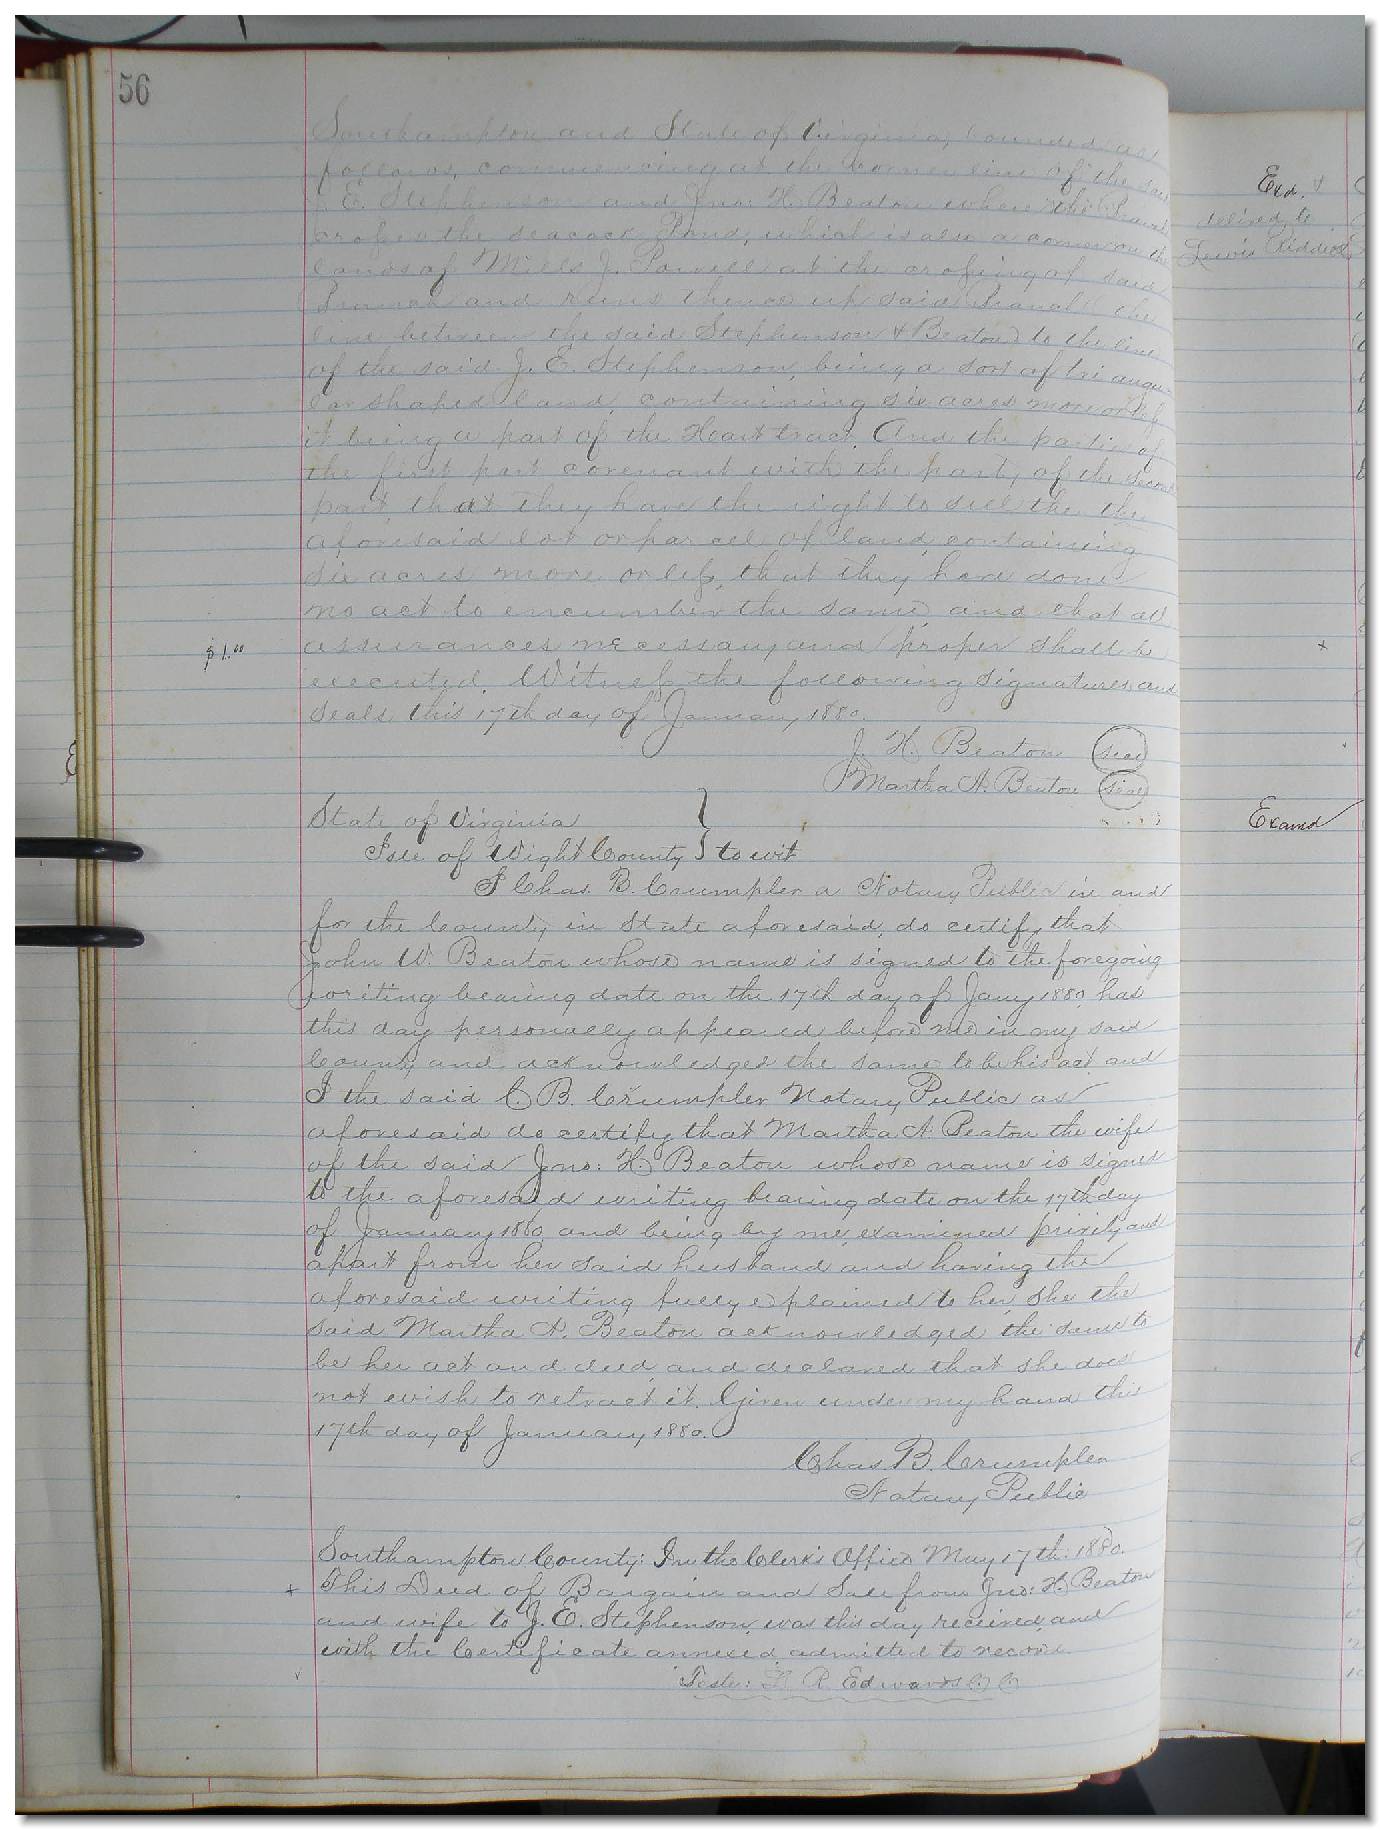 56
Southampton and State of Virginia, bounded as
follows, commencing at the corner line of the said
J. E. Stephenson and Jno: H. Beaton where the Branch
crosses the seacock Pond; which is also a corner on the
lands of Mills J. Powell at the crossing of said
Branch and runs thence up said Branch, the
line between the said Stephenson & Beaton to the line
of the said J. E. Stephenson, being a sort of tri angu-
lar shaped land, containing six acres more or less
it being a part of the Heart tract. And the parties of
the first part covenant with the party of the second
part, that they have the right to sell the the
aforesaid lot or parcel of land, containing
six acres more or less, that they have done
no act to encumber the same, and that all
assurances necessary and proper shall be
$1.00
executed. Witness the following signatures and
seals, this 17th day of January, 1880.
J. H. Beaton seal
Martha A. Beaton seal
State of Virginia
Isle of Wight County } to wit
I Chas. B. Crumpler a Notary Public in and
for the County in State aforesaid, do certify that
John W. Beaton whose name is signed to the foregoing
writing bearing date on the 17th day of Jany 1880, has
this day personally appeared before me in my said
County and acknowledged the same to be his act, and
I the said C. B. Crumpler Notary Public as
aforesaid do certify that Martha A. Beaton the wife
of the said Jno: H. Beaton whose name is signed
to the aforesaid writing bearing date on the 17th day
of January 1880, and being by me examined privily and
apart from her said husband and having the
aforesaid writing fully explained to her, she the
said Martha A. Beaton acknowledged the same to
be her act and deed, and declared that she does
not wish to retract it. Given under my hand this
17th day of January, 1880.
Chas. B. Crumpler
Notary Public
Southampton County: In the Clerk's Office May 17th: 1880.
This Deed of Bargain and Sale from Jno: H. Beaton
and wife to J. E. Stephenson, was this day received, and
with the Certificate annexed, admitted to record.
Teste: L. R. Edwards C C
Exd. &
delivd. to
Lewis Riddick
Examd